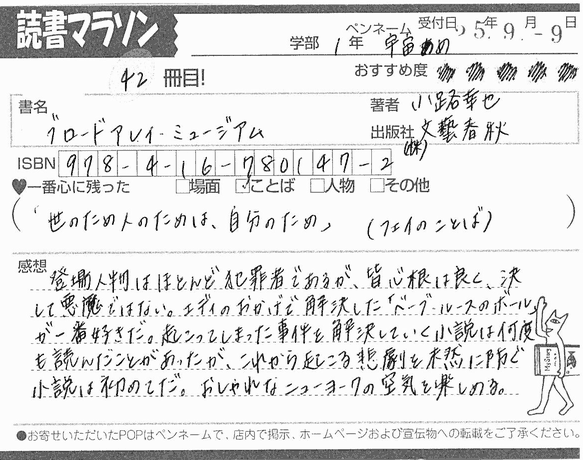 読書マラソン
学部 1年 ペンネーム 宇宙あめ 受付日 '25年9月-9日
42 冊目!
おすすめ度
書名
ブロードアレイ・ミュージアム
著者 小路幸也
出版社 文藝春秋(株)
ISBN 978-4-16-780147-2
♥一番心に残った □場面 ☑ことば □人物 □その他
(「世のため人のためは、自分のため」(フェイのことば))
感想
登場人物はほとんど犯罪者であるが、皆心根は良く、決
して悪魔ではない。エディのおかげで解決した「ベーブ・ルースのボール」
が一番好きだ。起こってしまった事件を解決していく小説は何度
も読んだことがあったが、これから起こる悲劇を未然に防ぐ
小説は初めてだ。おしゃれなニューヨークの空気を楽しめる。
●お寄せいただいたPOPはペンネームで、店内で掲示、ホームページおよび宣伝物への転載をご了承ください。